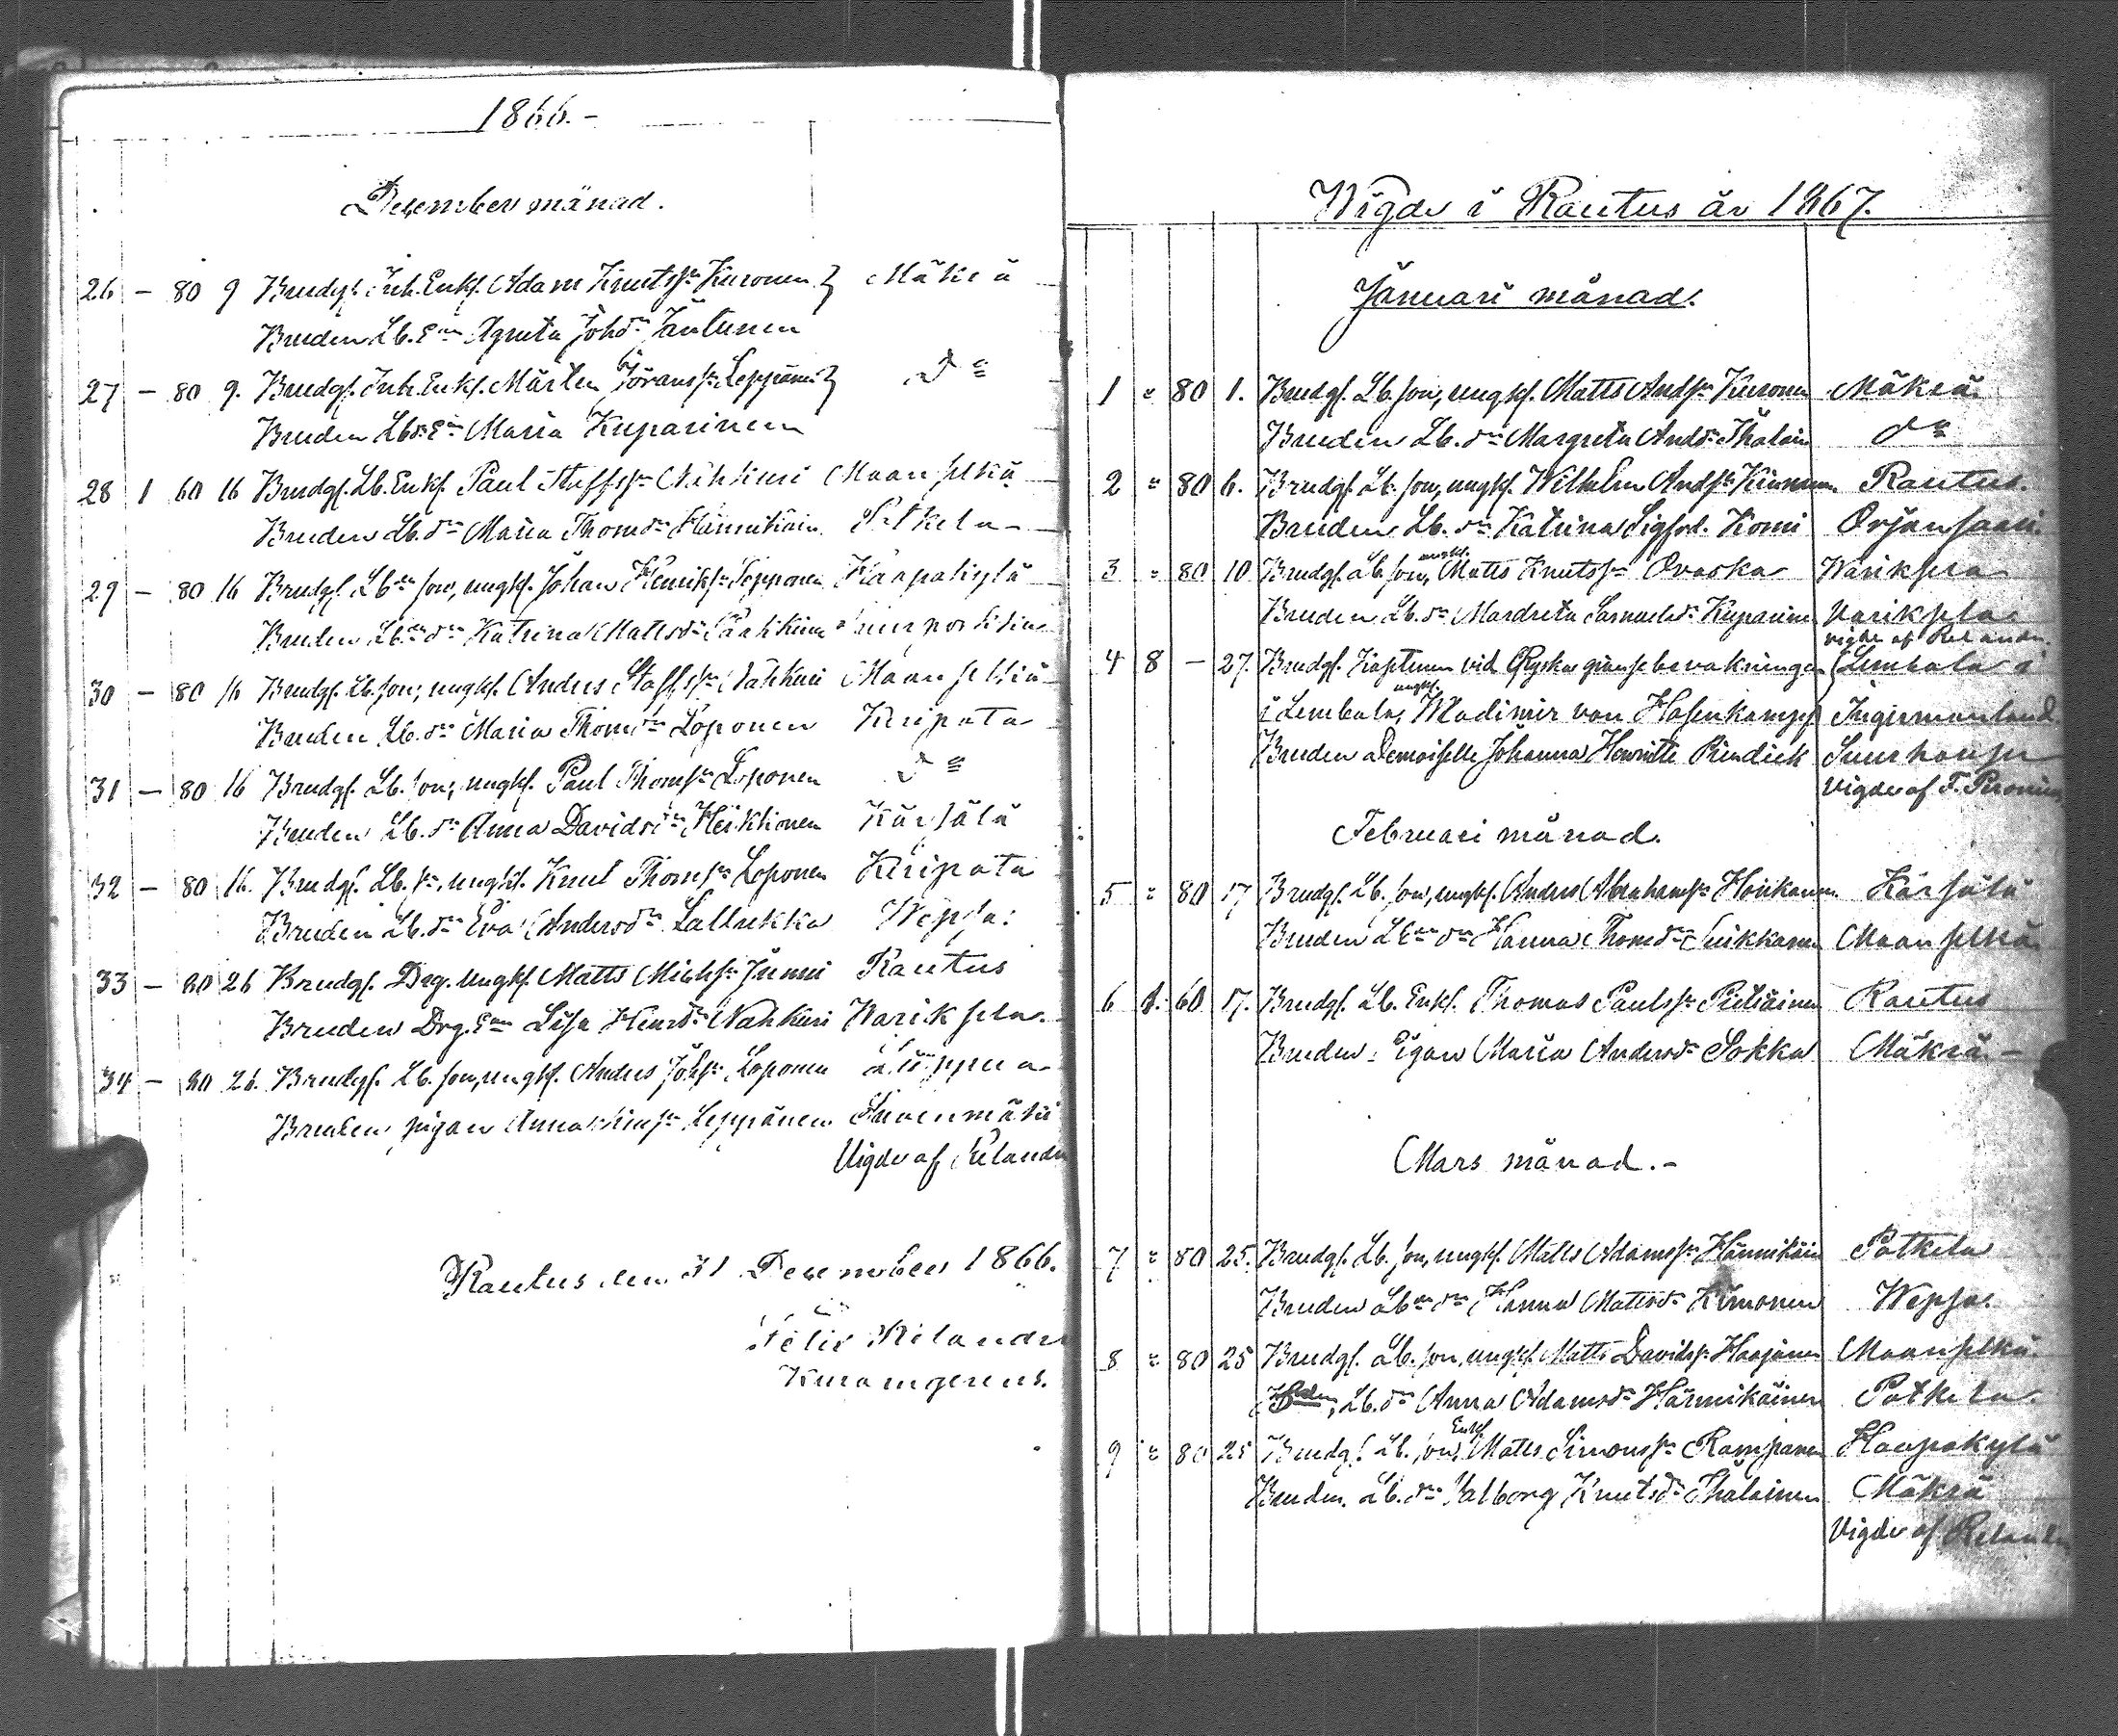 1866.-
December månad.
26 - 80 9 Brudg. Inh. Enkf. Adam Knutss: Kuronen } Mäkrä
Bruden Lb. Ean Agneta Johdr Jäntunen
27 - 80 9. Brudg. Inh. Enkf. Mårten Göranss: Leppänen } do
Bruden Maria Kuparinen
28 1 60 16 Brudg. Lb. Enkf. Paul Staffss: Nahkuri Maanselkä
Bruden Lb. dr Maria Thomdr Hännikäin. Potkela
29 - 80 16 Brudg. Lbdr son, ungk. Johan Henrikss: Lepponen Haapakylä
Bruden dr Katrina Mattsdr Pärkkinen
30 - 80 16 Brudg. Lb. son, ungk. Anders Staffss: Nahkuri Maanselkä
Bruden Lb. dr Maria Thomdr Loponen Kuripata
31 - 80 16 Brudg. Lb. son, ungk. Paul Thomss: Loponen do
Bruden Lb. dr Anna Davidsdr Heikkonen Kärsälä
32 - 80 16. Brudg. Lb. s:, ungk. Knut Thomss: Loponen Kuripata
Bruden Lb. dr Eva Andersdr Lallukka Wepsa.
33 - 80 26 Brudg. Drg. ungk. Matts Michss: Junni Rautus
Bruden Drg. Ean Lisa Henrdr Nahkuri Warikselä.
34 - 80 26. Brudg. Lb. son, ungk. Anders Johss: Loponen
Bruden pigan Anna Leppänen Suvenmäki
Vigde af Relander
Rautus den 31 December 1866.
Felix Relander
Kuramgerens.
Wigde i Rautus år 1867.
Januari månad.
1 " 80 1. Brudg. Lb. son, ungk. Matts Andss: Kuronen Mäkrä
Bruden Lb. dr Margreta Andsdr Ihalain do
2 " 80 6. Brudg. Lb. son, ungk. Wilhelm Andss: Kiuru Rautus.
Bruden Lb. dr Katrina Sigfrd. Komi Orjansaari.
ungk.
3 " 80 10 Brudg. Lb. son, Matts Knutss: Ovaska Warikselä
Bruden Lb. dr Mardreta Samuelsdr Kuparinen Varikselä
vigde af Relander
4 8 - 27. Brudg. Kaptenen vid Ryska gränsebevakningen } Lembala i
ungk.
i Lembala, Wladimir von Hasenkampf Ingermanland
Bruden Demoiselle Johanna Henriette Rindick Suurhousu
Vigde af F. Peronius
Februari månad.
5 " 80 17 Brudg. Lb. son, ungk. Anders Abrahamss: Honkanen Kärsälä
Bruden dr Hanna Thomdr Suikkanen Maanselkä
6 1. 60 17. Brudg. Lb. Enkf. Thomas Paulss: Pietiäinen Rautus
Bruden Pigan Maria Andersdr Sokka Mäkrä -
Mars månad.-
7 " 80 25. Brudg. Lb. son, ungk. Matts Adamss: Hännikäin Potkela
Bruden Lb dr Hanna Mattsdr Kimonen Wepsa.
8 " 80 25 Brudg. Lb. son, ungk. Matts Davidss: Haajanen Maanselkä.
Lb. dr Anna Adamsdr Hännikäinen Potkela.
Enkf
9 " 80 25 Brudg. Lb. son, Matts Simonss: Rampanen Haapakylä
Bruden. Lb. dr Valborg Knutsdr Ihalainen Mäkrä
Vigde af Relander